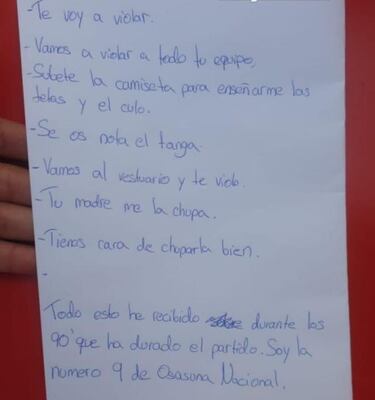 -Te voy a violar.
-Vamos a violar a todo tu equipo,
-Subete la camiseta para enseñarme las
tetas y el culo.
-Se os nota el tanga.
-Vamos al vestuario y te violo.
-Tu madre me la chupa.
-Tienes cara de chuparla bien.
-
Todo esto he recibido durante los
90' que ha durado el partido. Soy la
numero 9 de Osasuna Nacional.